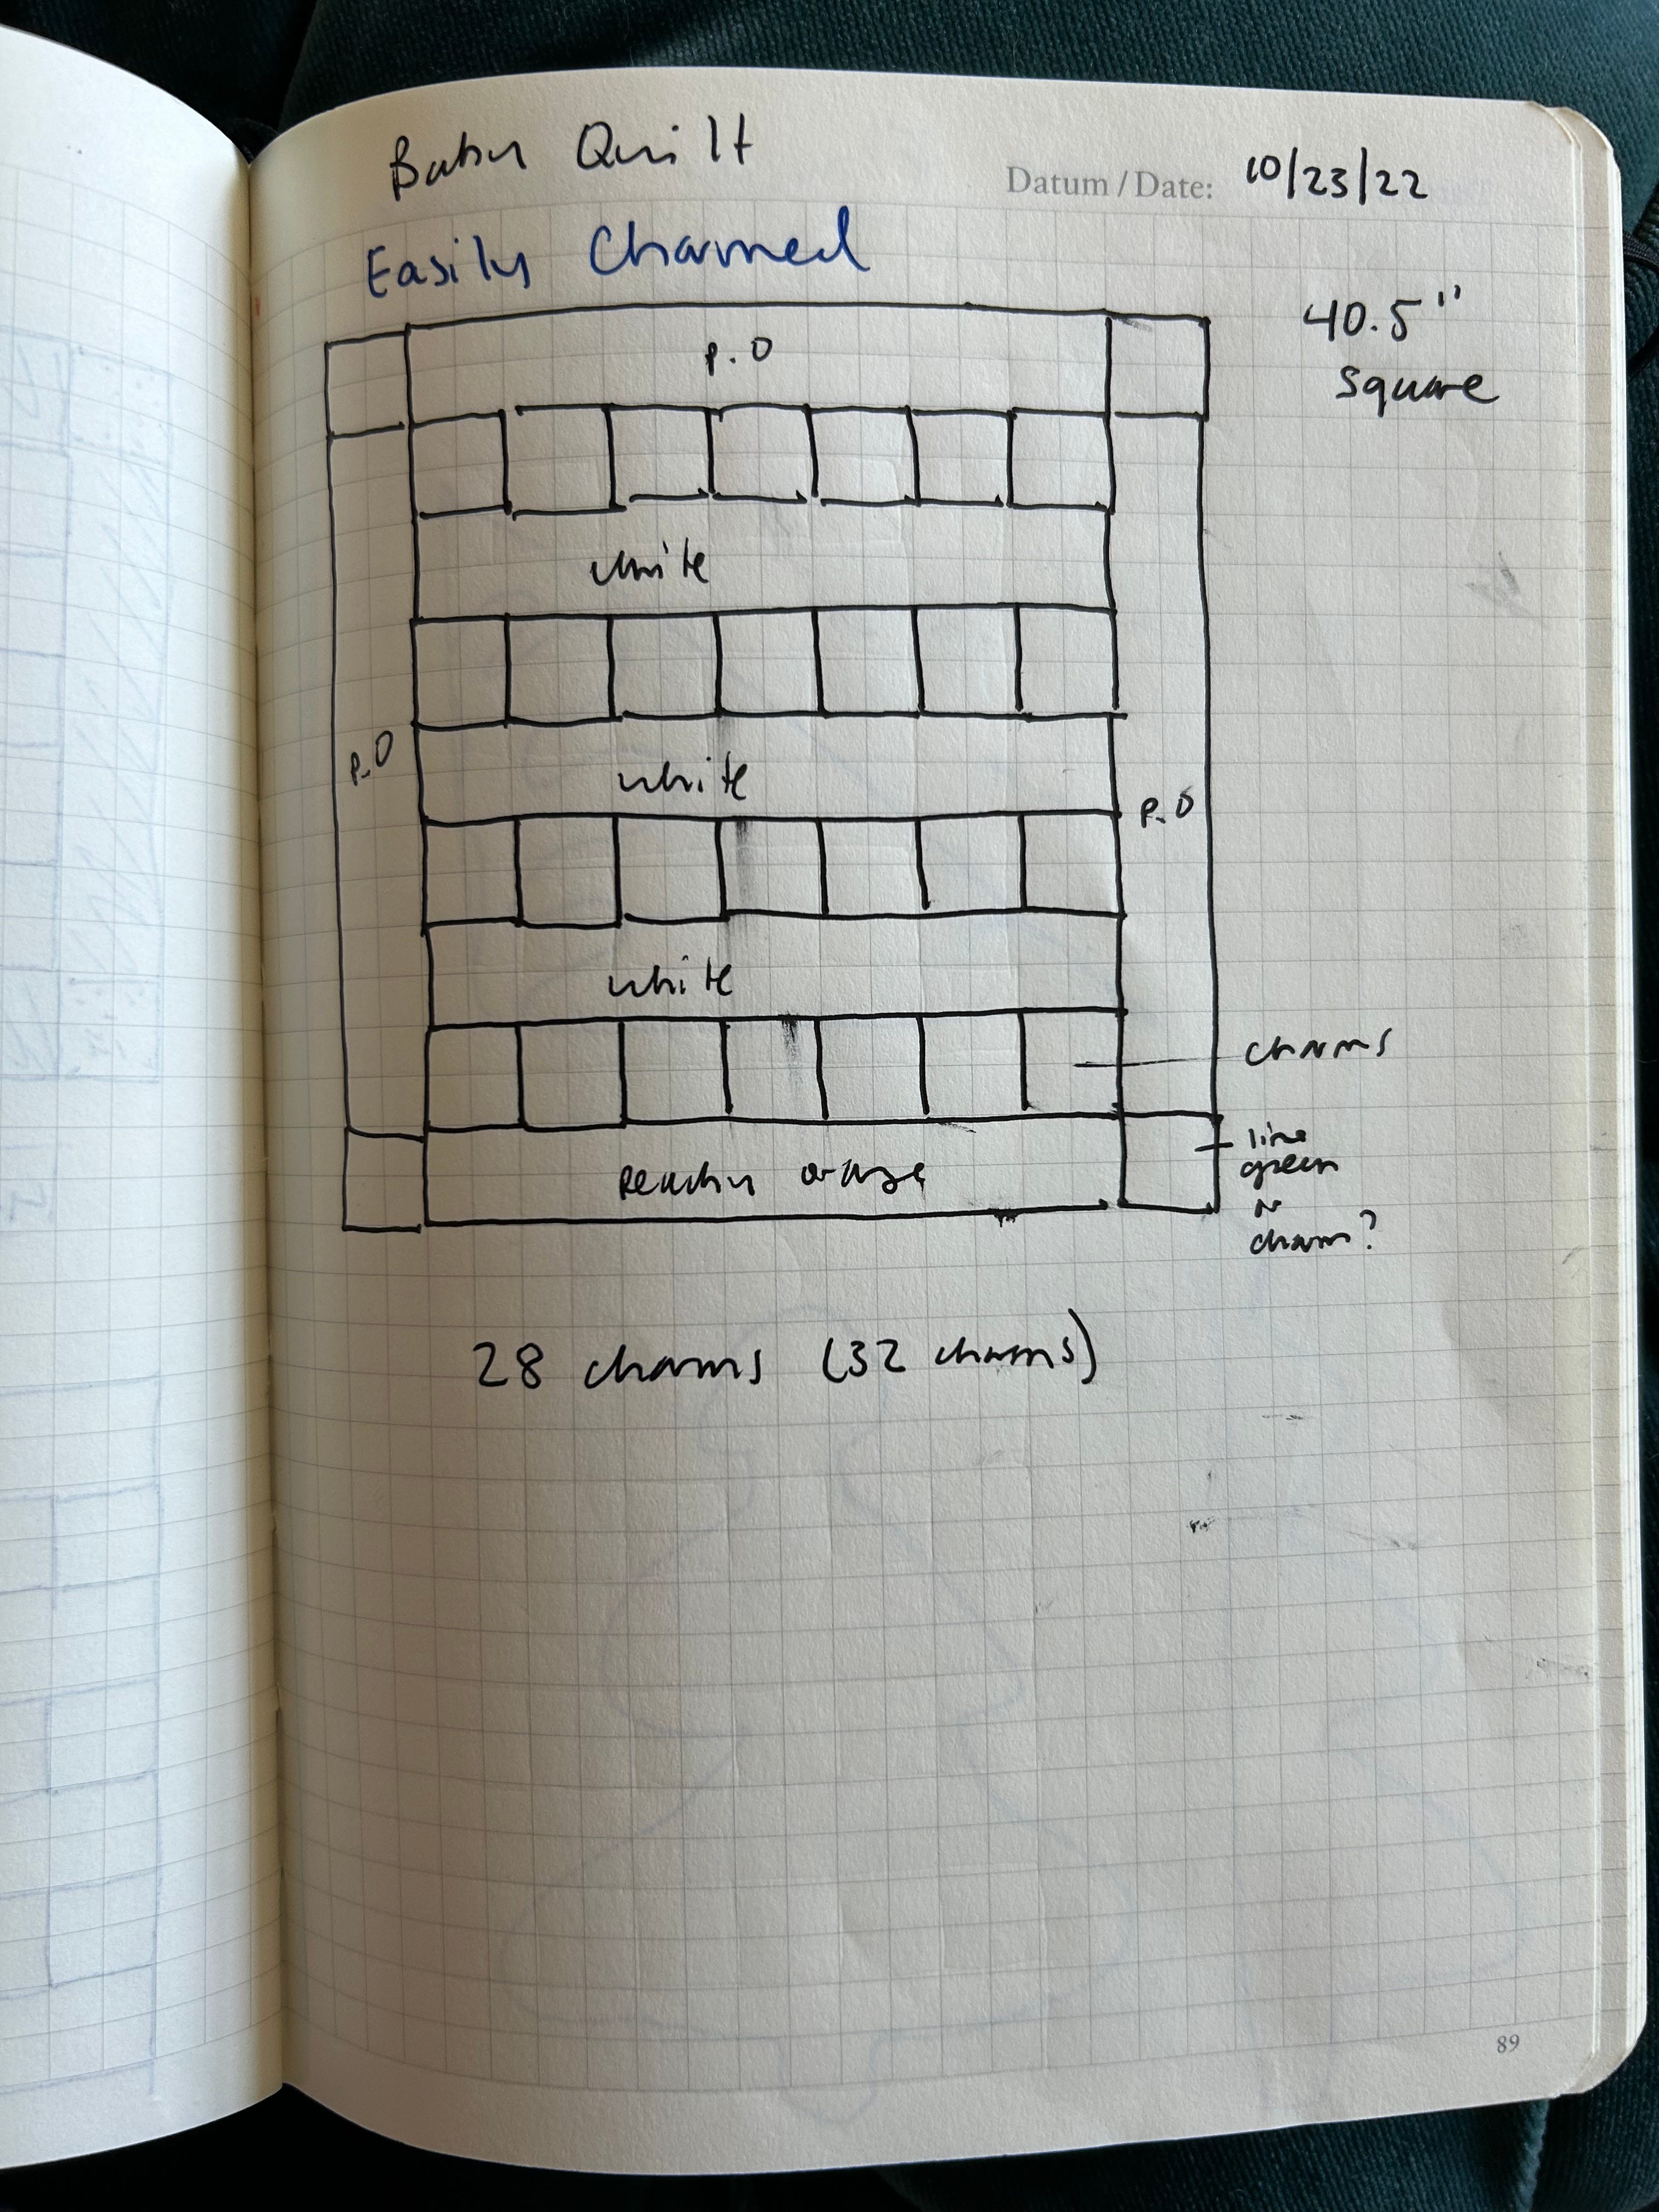 Baby Quilt
Datum / Date: 10/23/22
Easily Charmed
40.5"
square
P.O
white
white
P.O
P.O
white
charms
peachy orange
lime
green
or
charm?
28 charms (32 charms)
89